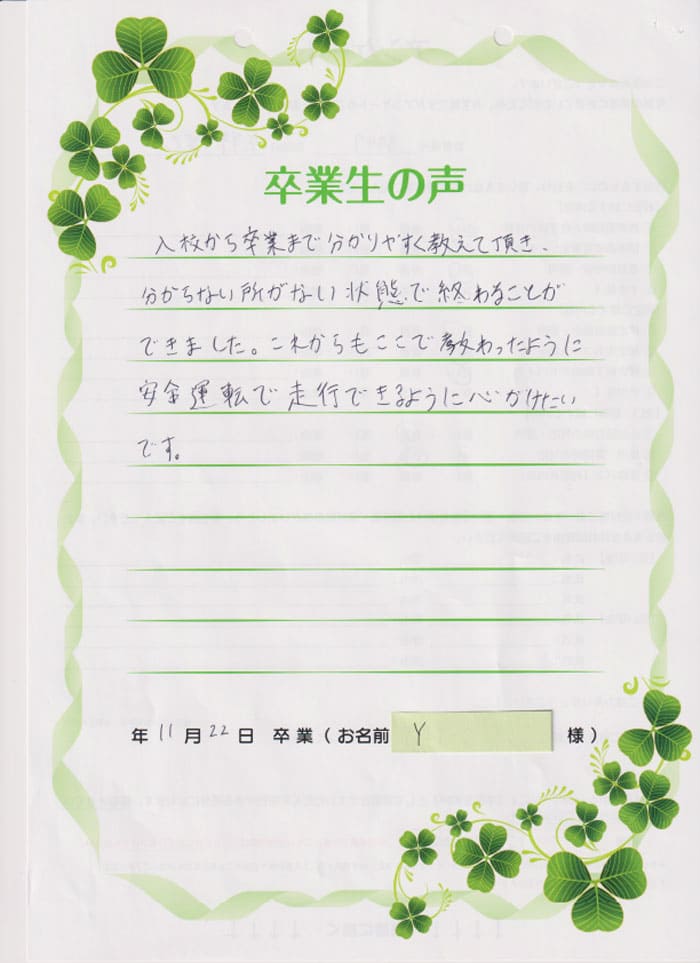 卒業生の声
入校から卒業まで分かりやすく教えて頂き、
分からない所がない状態で終わることが
できました。これからもここで教わったように
安全運転で走行できるように心がけたい
です。
年 11 月 22 日 卒業 ( お名前 Y 様 )